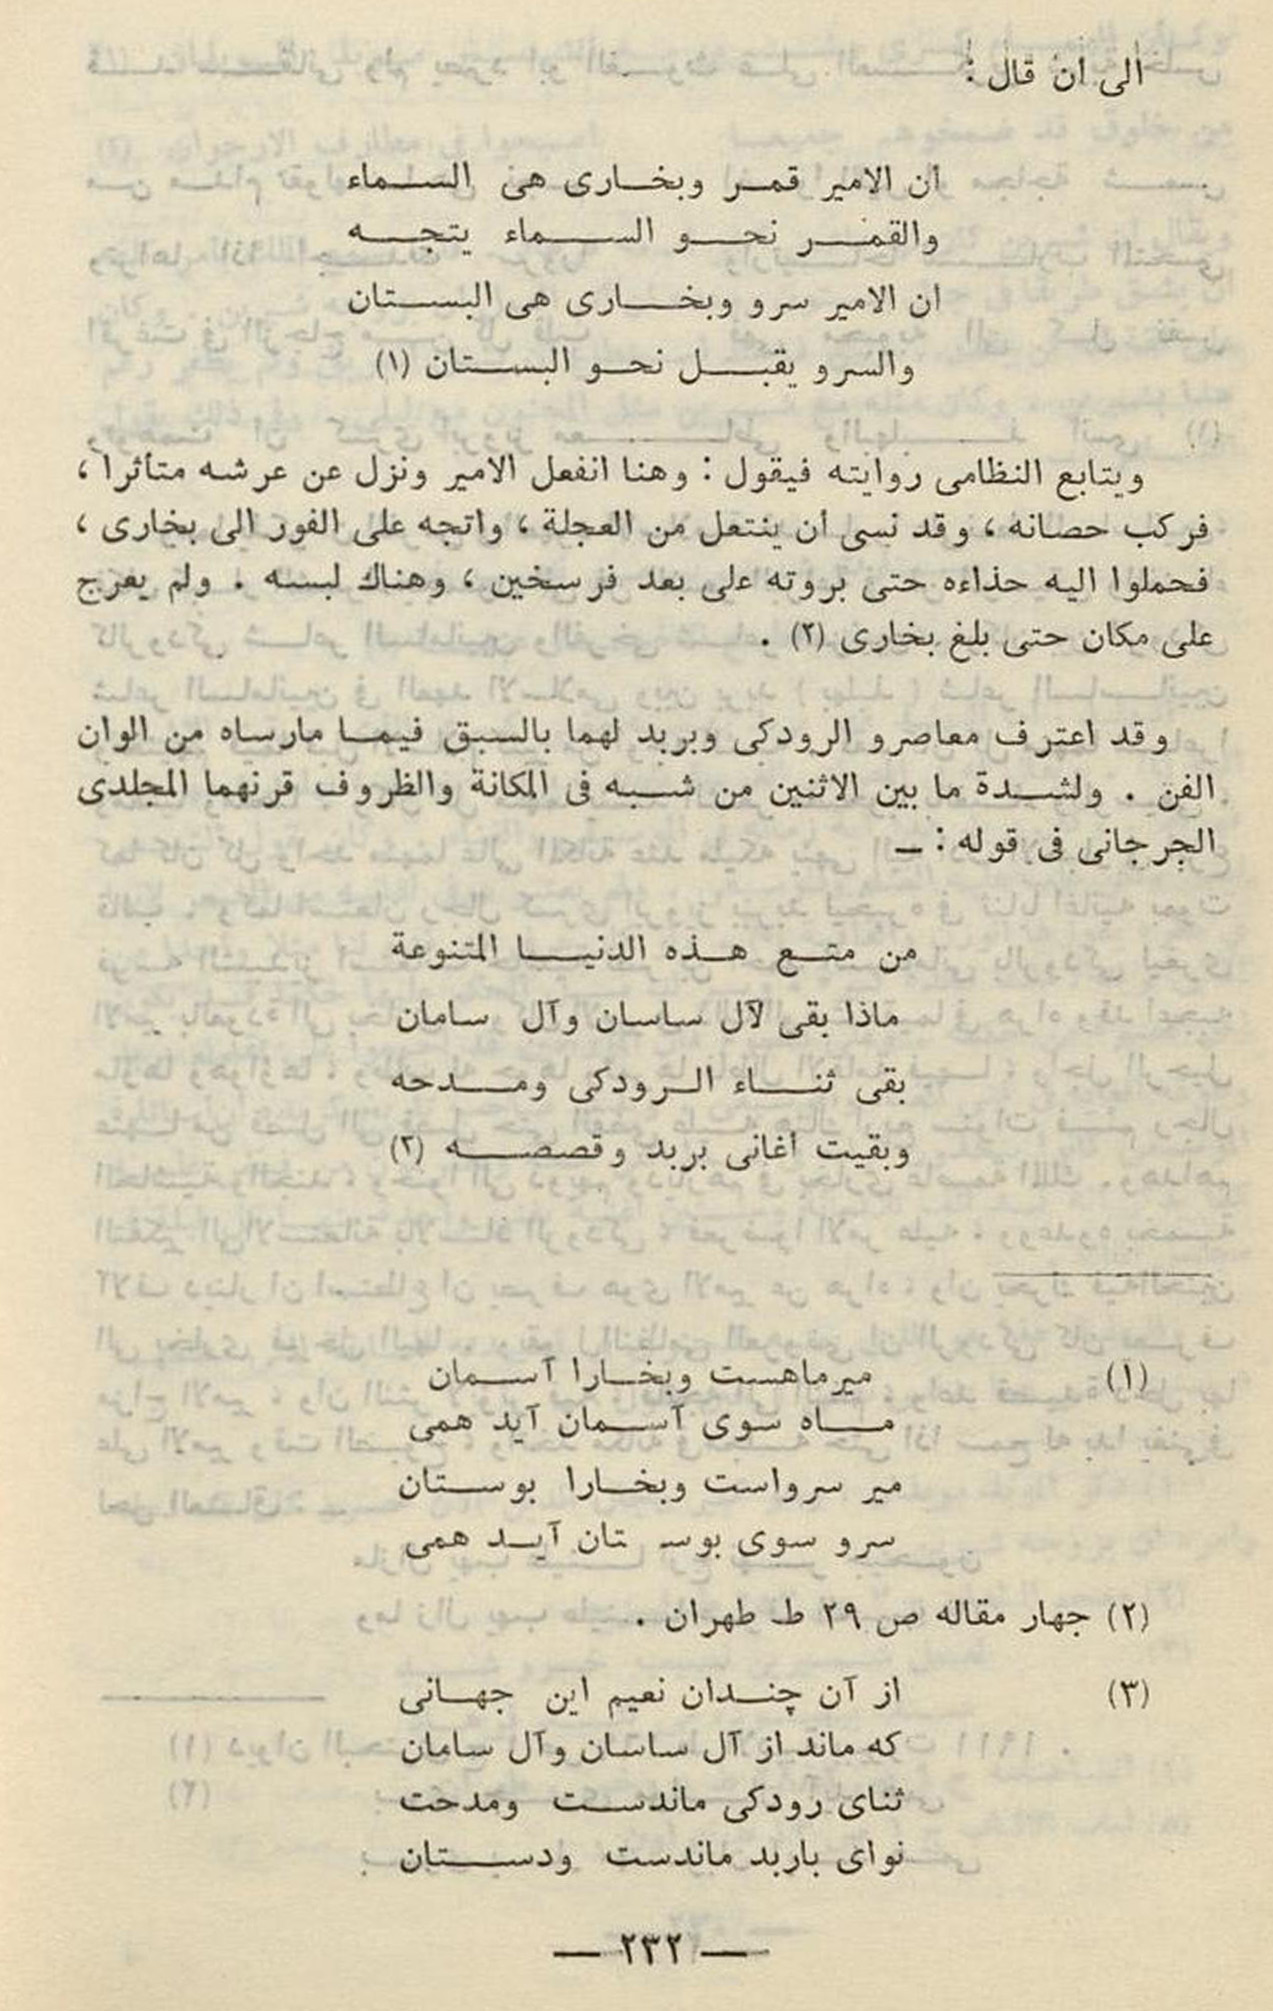 الى ان قال :
ان الامير قمر وبخارى هى السماء
والقمر نحو السماء يتجه
ان الامير سرو وبخارى هى البستان
والسرو يقبل نحو البستان (١)
ويتابع النظامى روايته فيقول : وهنا انفعل الامير ونزل عن عرشه متأثرا ،
فركب حصانه ، وقد نسى ان ينتعل من العجلة ، واتجه على الفور الى بخارى ،
فحملوا اليه حذاءه حتى بروته على بعد فرسخين ، وهناك لبسه . ولم يعرج
على مكان حتى بلغ بخارى (٢) .
وقد اعترف معاصرو الرودكى وبربد لهما بالسبق فيما مارساه من الوان
الفن . ولشدة ما بين الاثنين من شبه فى المكانة والظروف قرنهما المجلدى
الجرجانى فى قوله : ــ
من متع هذه الدنيا المتنوعة
ماذا بقى لآل ساسان وآل سامان
بقى ثناء الرودكى ومدحه
وبقيت اغانى بربد وقصصه (٣)
(١) ميرماهست وبخارا آسمان
ماه سوى آسمان آيد همى
مير سرواست وبخارا بوستان
سرو سوى بوستان آيد همى
(٢) جهار مقاله ص ٢٩ ط طهران .
(٣) از آن چندان نعيم اين جهانى
كه ماند از آل ساسان وآل سامان
ثناى رودكى ماندست ومدحت
نواى باربد ماندست ودستان
— ٢٣٢ —